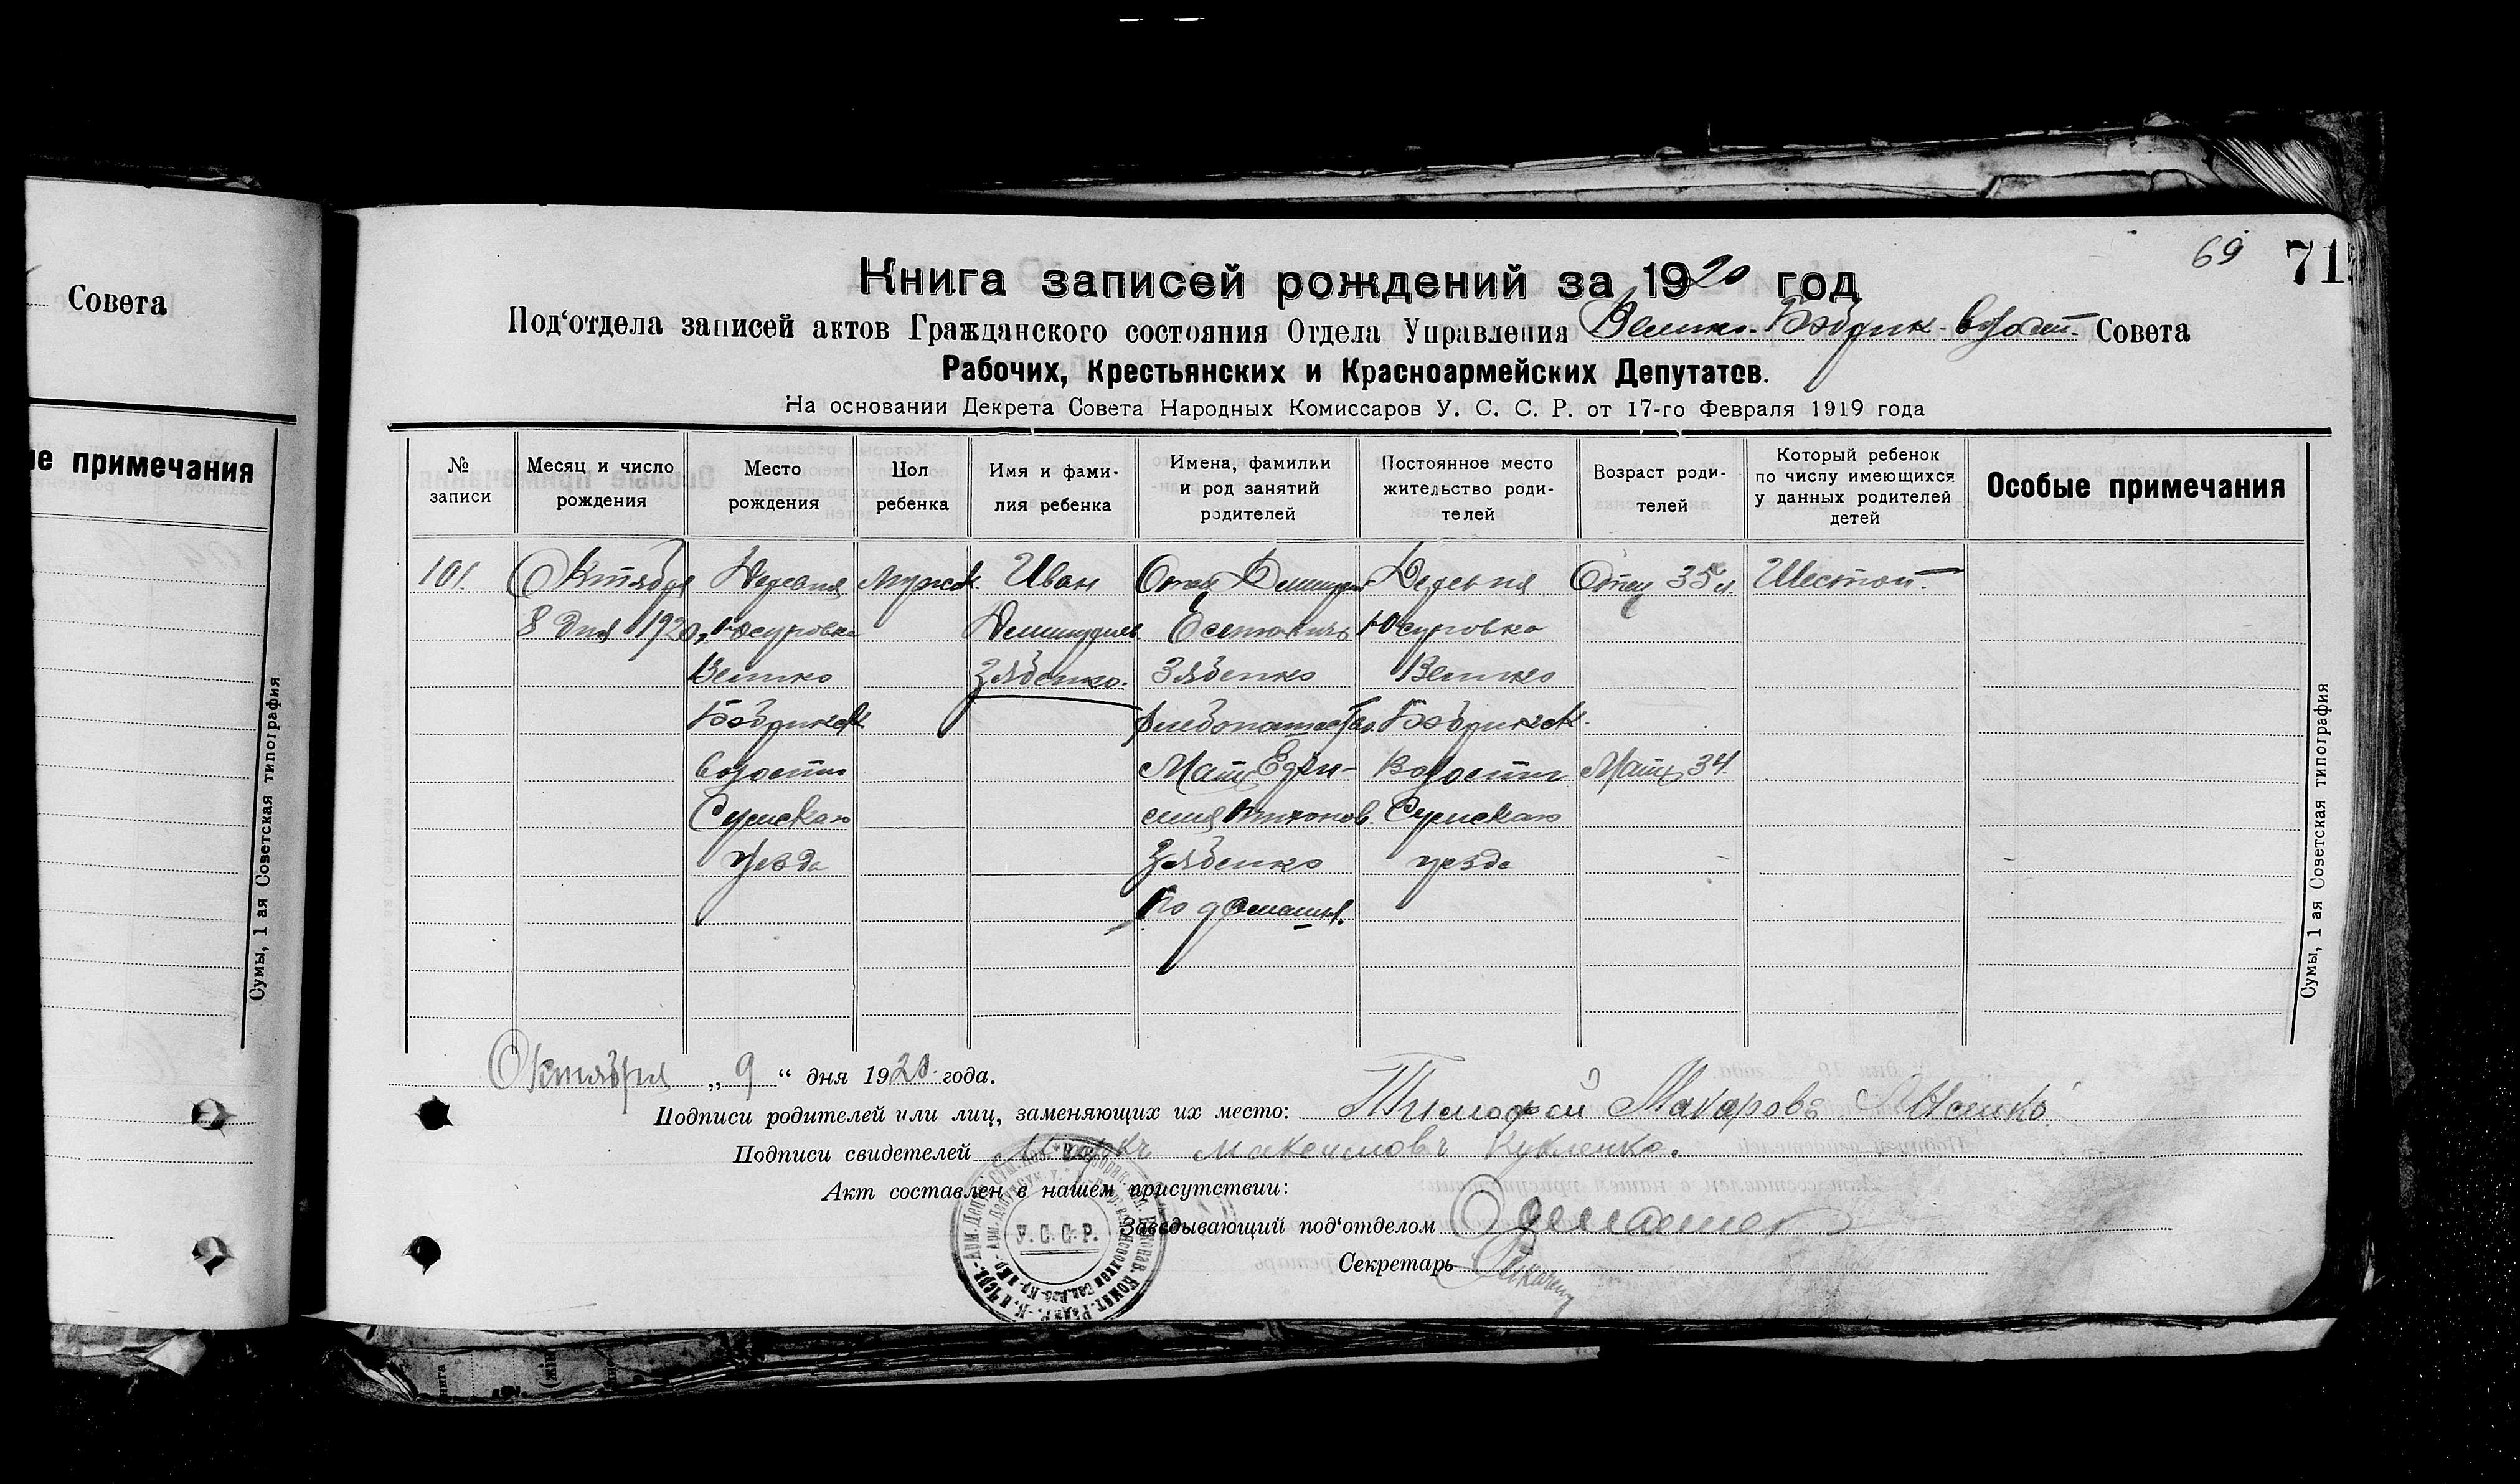 Совета
ие примечания
Сумы, 1 ая Советская типография
69 71
Книга записей рождений за 1920 год
Под‘отдела записей актов Гражданского состояния Отдела Управления Велико-Бобрик. волост. Совета
Рабочих, Крестьянских и Красноармейских Депутатов.
На основании Декрета Совета Народных Комиссаров У. С. С. Р. от 17-го Февраля 1919 года
№ записи
Месяц и число рождения
Место рождения
Пол ребенка
Имя и фами-
лия ребенка
Имена, фамилии
и род занятий
родителей
Постоянное место
жительство роди-
телей
Возраст роди-
телей
Который ребенок
по числу имеющихся
у данных родителей
детей
Особые примечания
101.
Октября
8 дня 1920
Деревня
Юсуповка
Велико
Бобрикск.
Волости
Сумскаго
уезда
Мужск.
Иван
Зябенко.
Отец
Зябенко
Мать
Зябенко
по домашн.
Деревня
Юсуповка
Велико
Бобрикск.
Волости
Сумскаго
уезда
Отец 35 л.
Мать 34.
Шестой.
Октября „ 9 “ дня 1920 года.
Подписи родителей или лиц, заменяющих их место: Тимофей Макаров
Подписи свидетелей Максимовъ
Акт составлен в нашем присутствии:
Заведывающий под‘отделом
Секретарь
У. С. С. Р.
Сумы, 1 ая Советская типография